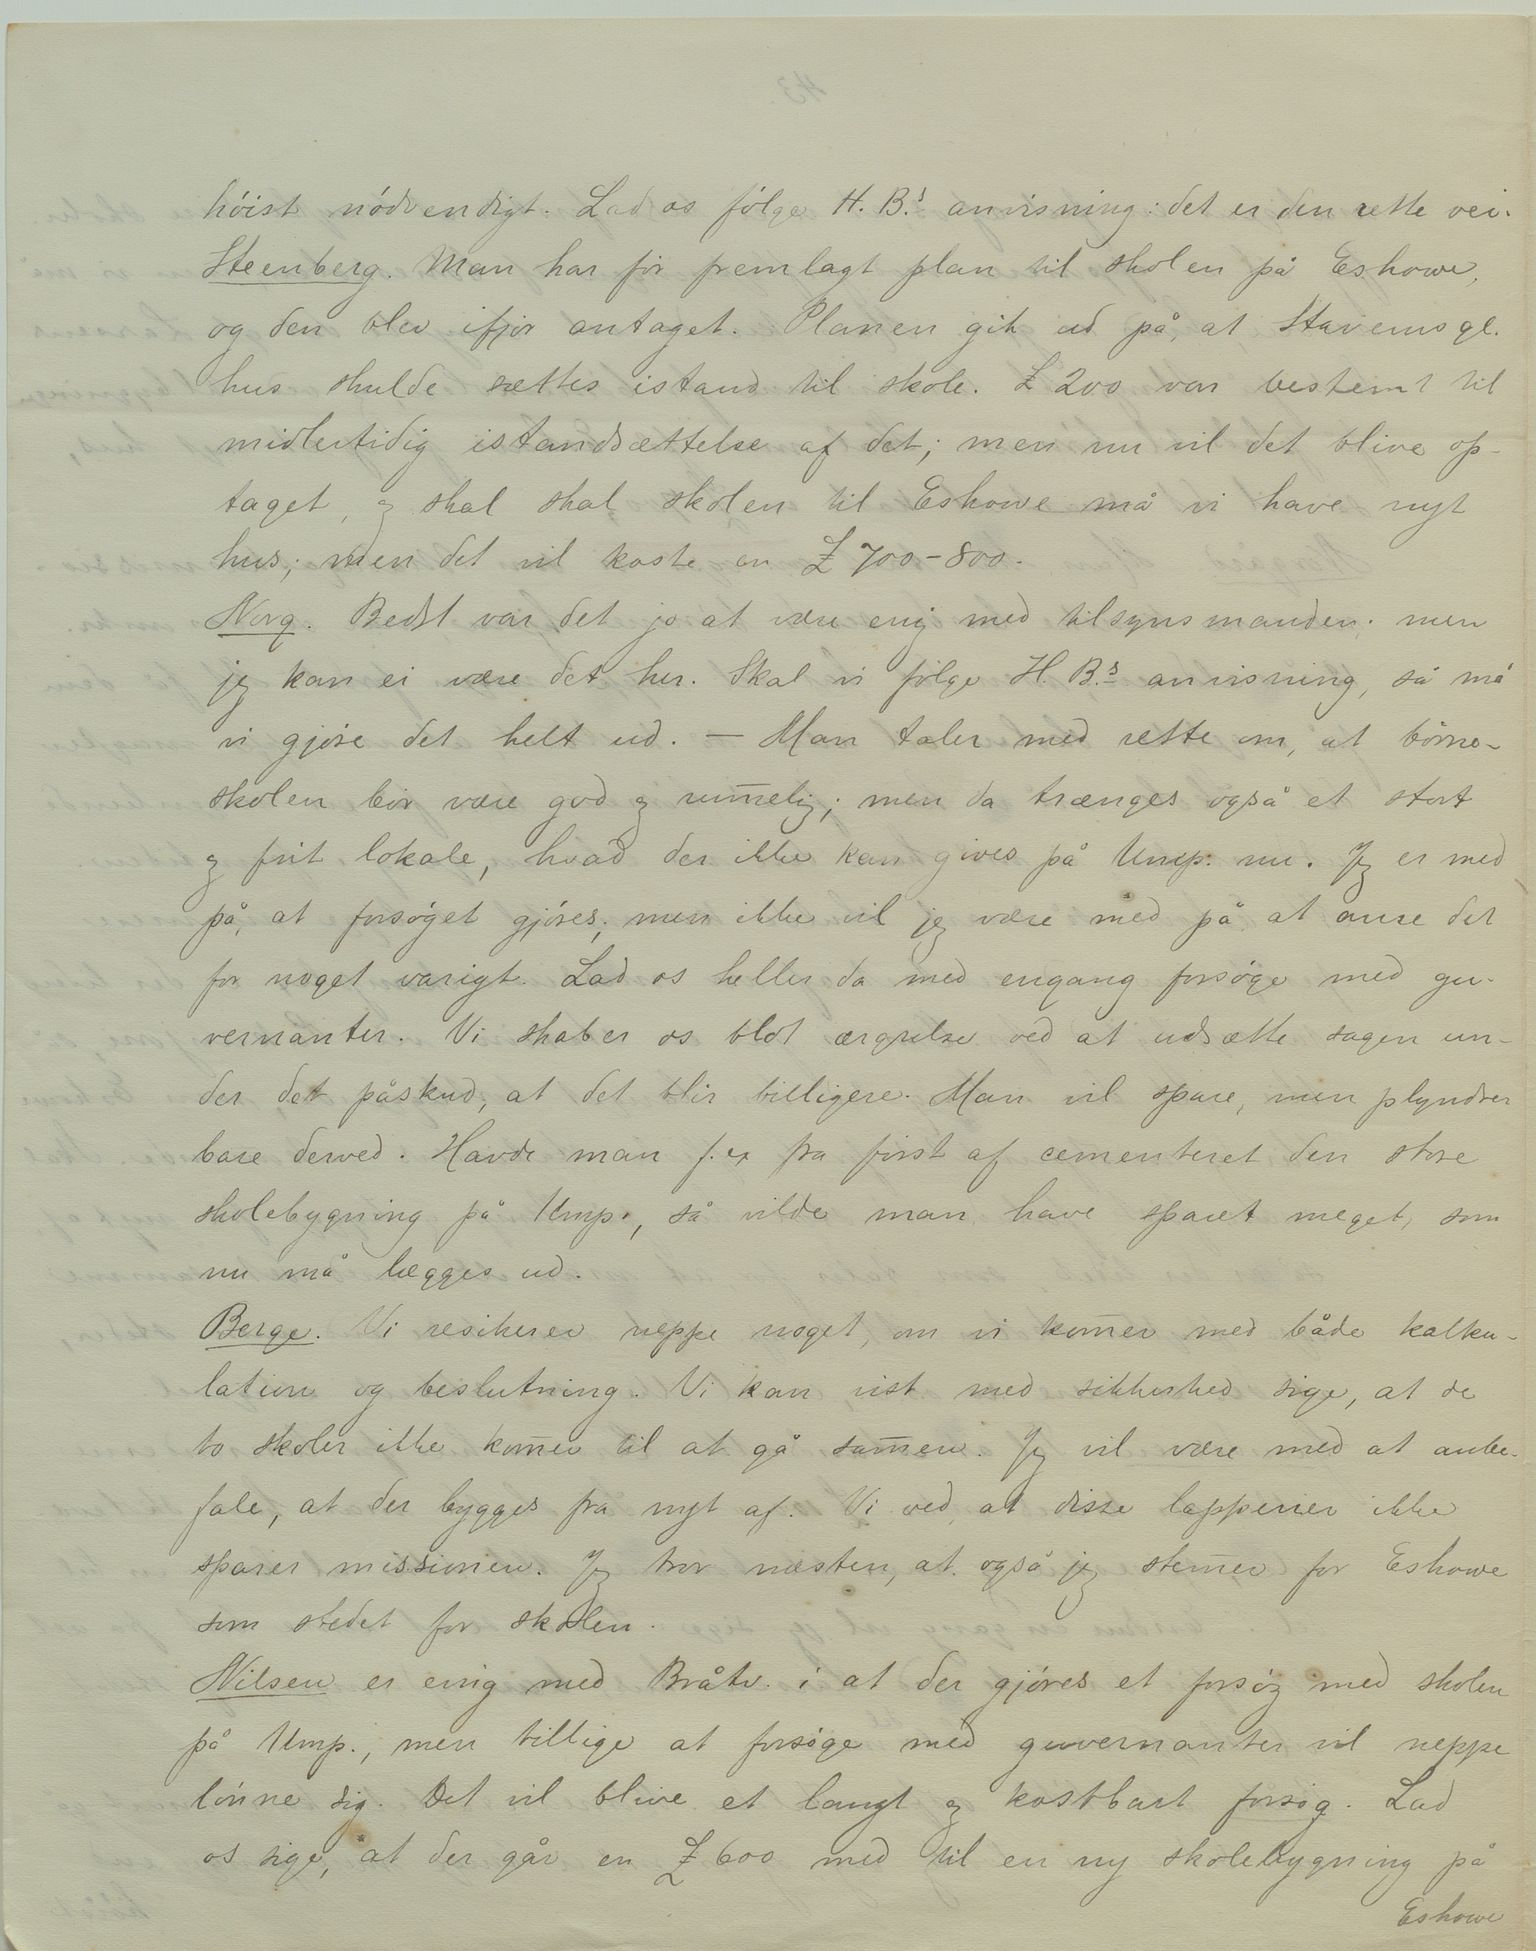 höist nödvendigt. Lad os följe H. B.s anvisning: det er den rette vei.
Steenberg. Man har för fremlagt plan til skolen på Eshowe,
og den blev ifjor antaget. Planen gik ud på, at Stavems gl.
hus skulde sættes istand til skole. £ 200 var bestemt til
midlertidig istandsættelse af det; men nu vil det blive op-
taget, og skal skal skolen til Eshowe må vi have nyt
hus; men det vil koste en £ 700-800.
Norg. Bedst var det jo at være enig med tilsynsmanden. men
jeg kan ei være det her. Skal vi følge H. B.s anvisning, så må
vi gjöre det helt ud. — Man taler med rette om, at börne-
skolen bör være god og rum̄elig; men da trænges også et stort
og frit lokale, hvad der ikke kan gives på Ump. nu. Jeg er med
på, at forsöget gjöres; men ikke vil jeg være med på at anse det
for noget varigt. Lad os heller da med engang forsöge med gu-
vernanter. Vi skaber os blot ærgrelse ved at udsætte sagen un-
der det påskud, at det blir billigere. Man vil spare, men plyndrer
bare derved. Havde man f. ex fra först af cementeret den store
skolebygning på Ump., så vilde man have sparet meget, som
nu må lægges ud.
Berge. Vi resikerer neppe noget, om vi kom̄er med både kalku-
lation og beslutning. Vi kan vist med sikkerhed sige, at de
to skoler ikke kom̄er til at gå sam̄en. Jeg vil være med at anbe-
fale, at der bygges fra nyt af. Vi ved, at disse lapperier ikke
sparer missionen. Jeg tror næsten, at også jeg stem̄er for Eshowe
som stedet for skolen.
Nilsen er enig med Bråtv. i at der gjöres et forsög med skolen
på Ump., men tillige at forsöge med guvernanter vil neppe
lönne sig. Det vil blive et langt og kostbart forsög. Lad
os sige, at der går en £ 600 med til en ny skolebygning på
Eshowe